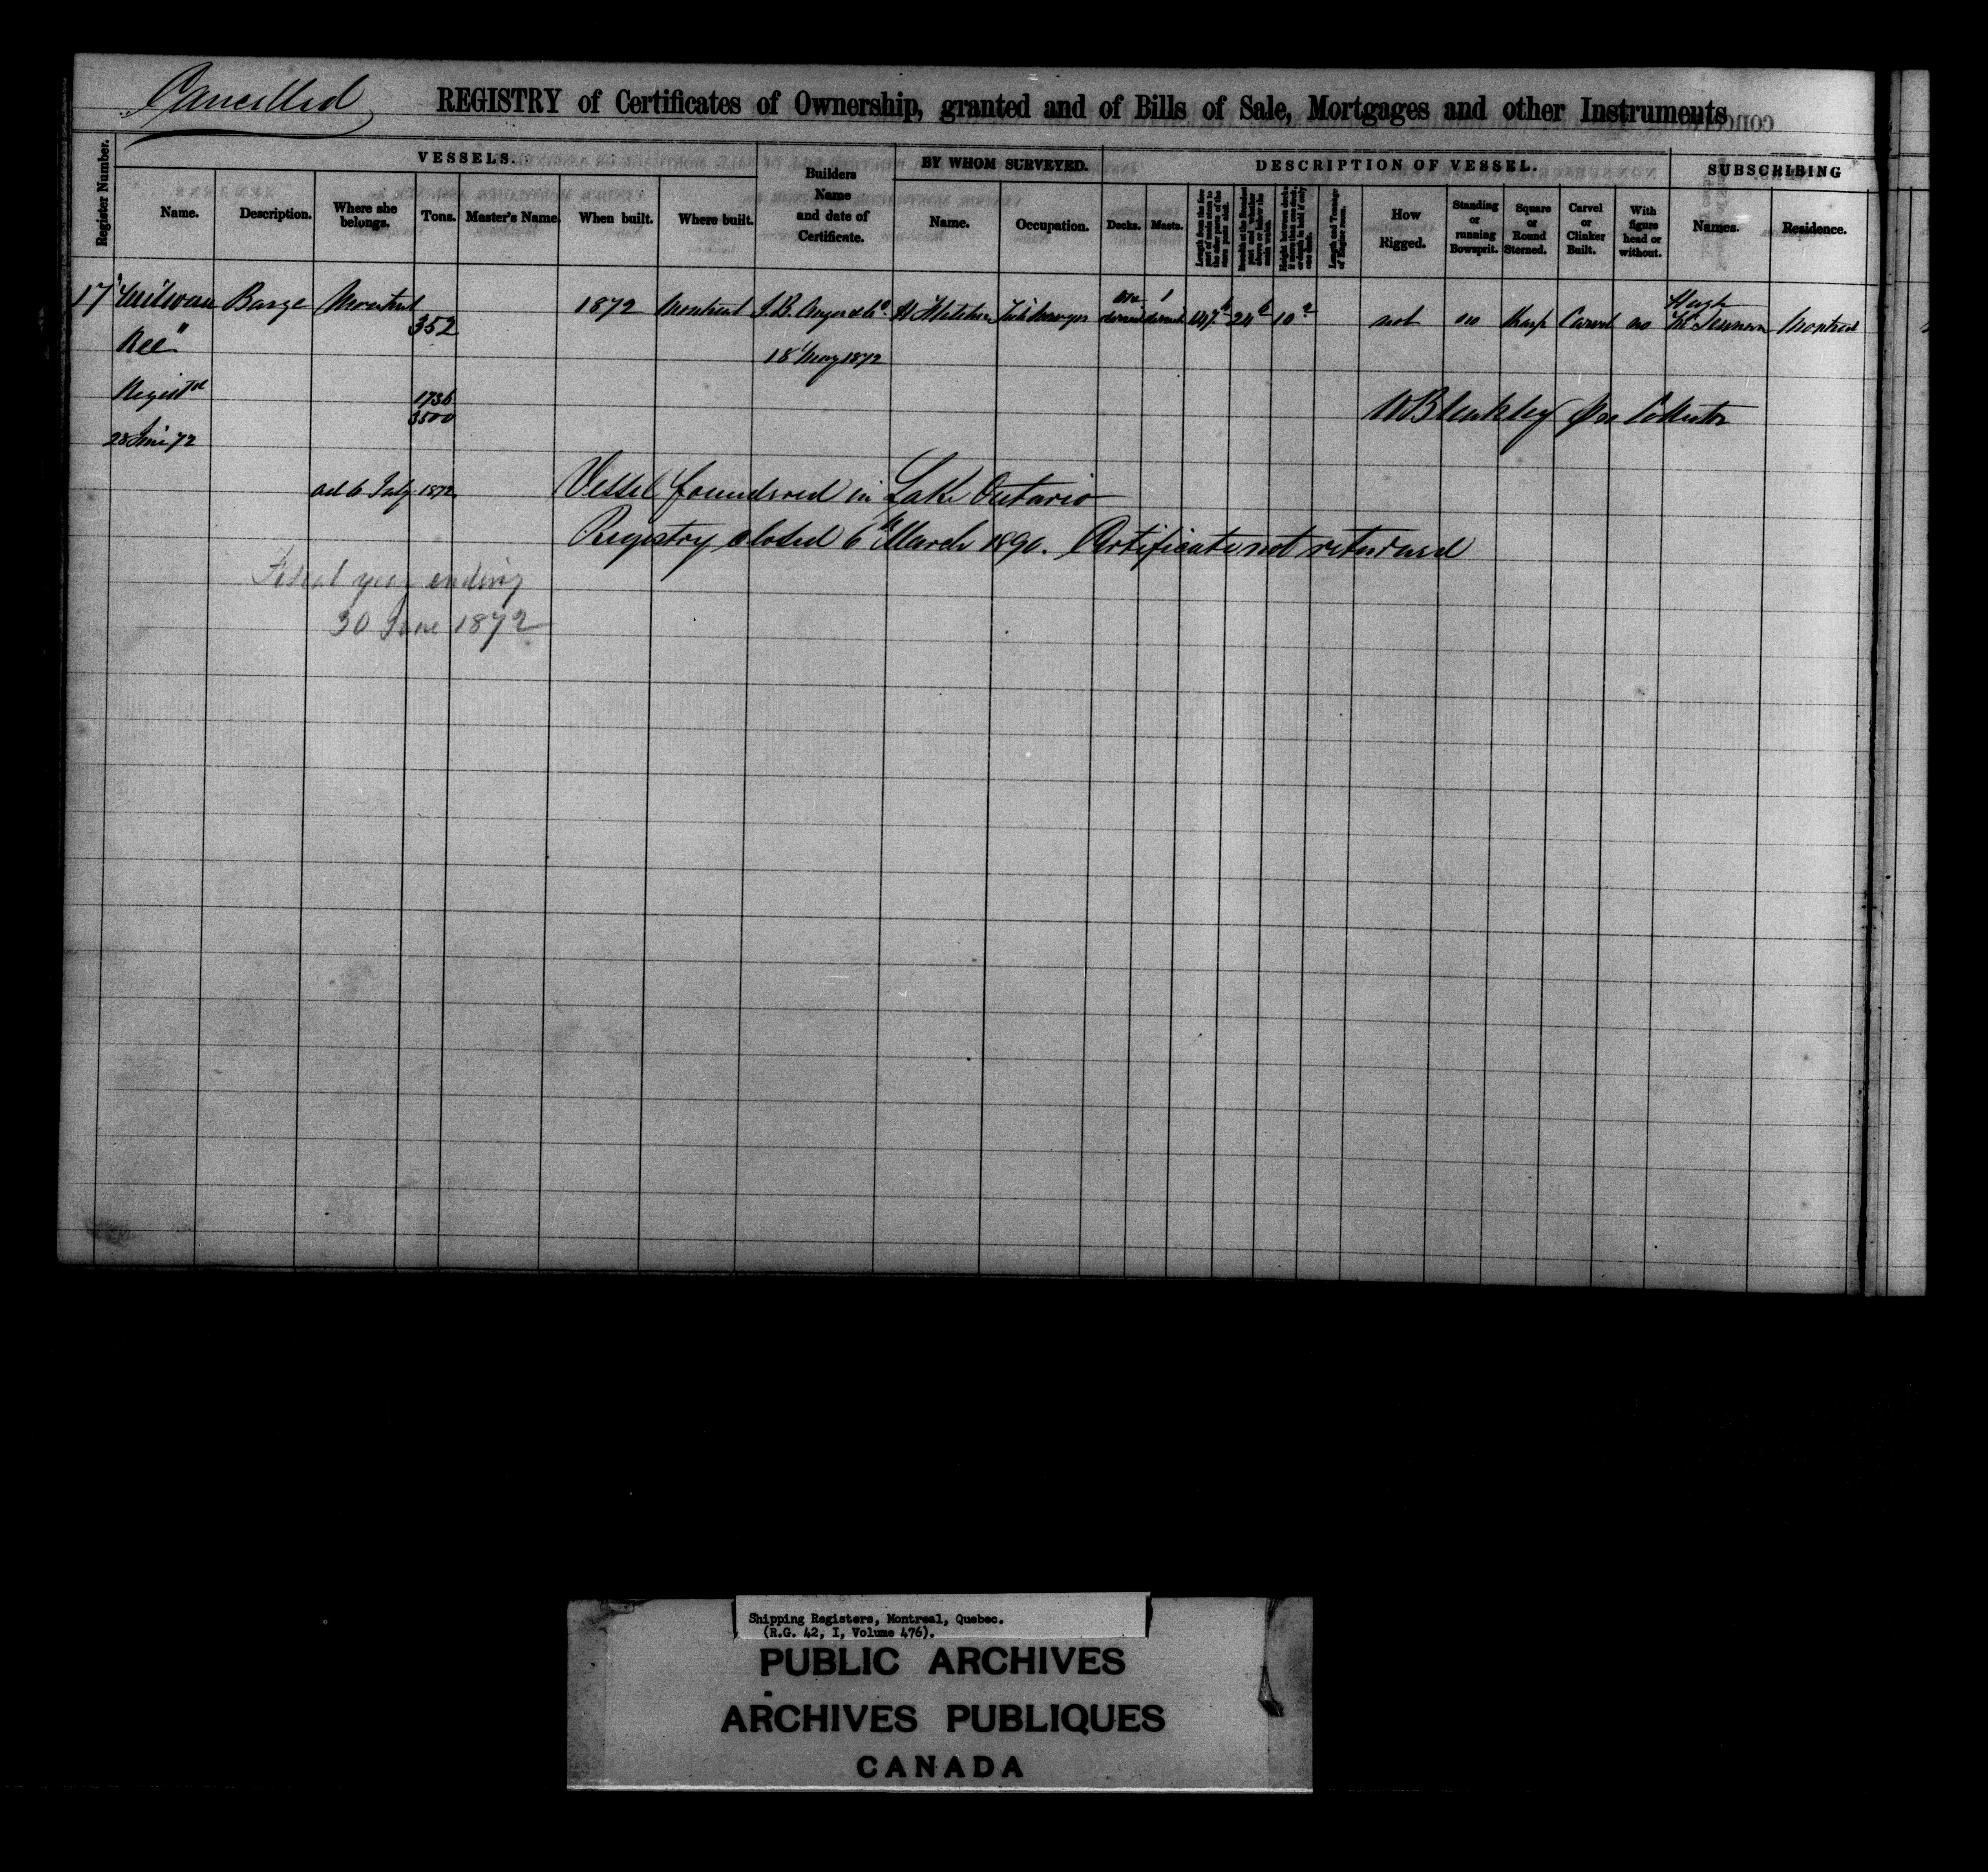 Cancelled
REGISTRY of Certificates of Ownership, granted and of Bills of Sale, Mortgages and other Instruments
Register Number.
VESSELS.
Name. Description. Where she belongs. Tons. Master's Name. When built. Where built.
Builders Name and date of Certificate.
BY WHOM SURVEYED.
Name. Occupation.
DESCRIPTION OF VESSEL.
Decks. Masts.
How Rigged.
Standing or running Bowsprit.
Square or Round Sterned.
Carvel or Clinker Built.
With figure head or without.
SUBSCRIBING
Names. Residence.
17 Barge Montreal 352 1872 Montreal 147 24 6 10 2 not no Sharp Carvel no Hugh Montreal
18 May 1872
1736
3500
28 June 72
Per Collector
6 July 1872
Vessel foundered in Lake Ontario
Registry closed 6th March 1890. Certificate not returned
Fiscal year ending
30 June 1872
Shipping Registers, Montreal, Quebec.
(R.G. 42, I, Volume 476).
PUBLIC ARCHIVES
ARCHIVES PUBLIQUES
CANADA